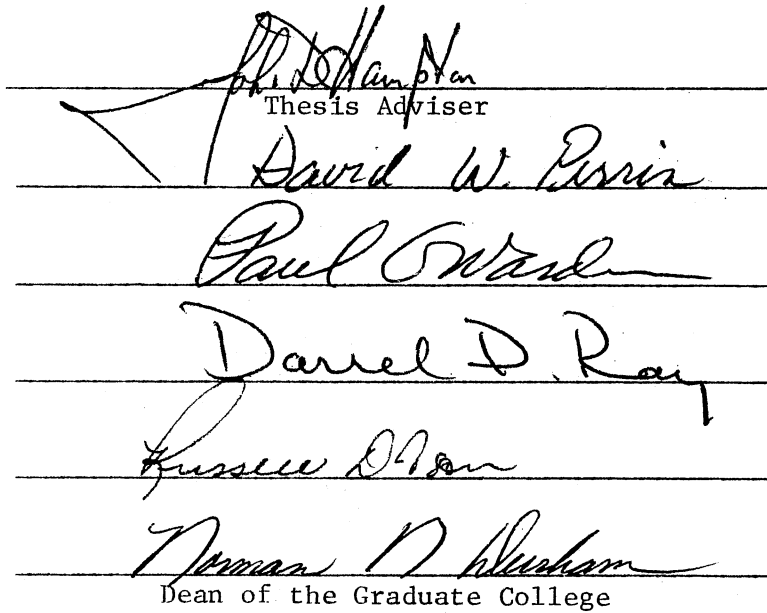 John D Hampton
Thesis Adviser
David W. Perrin
Paul G Warden
Darrel D. Ray
Russell
Norman N Durham
Dean of the Graduate College